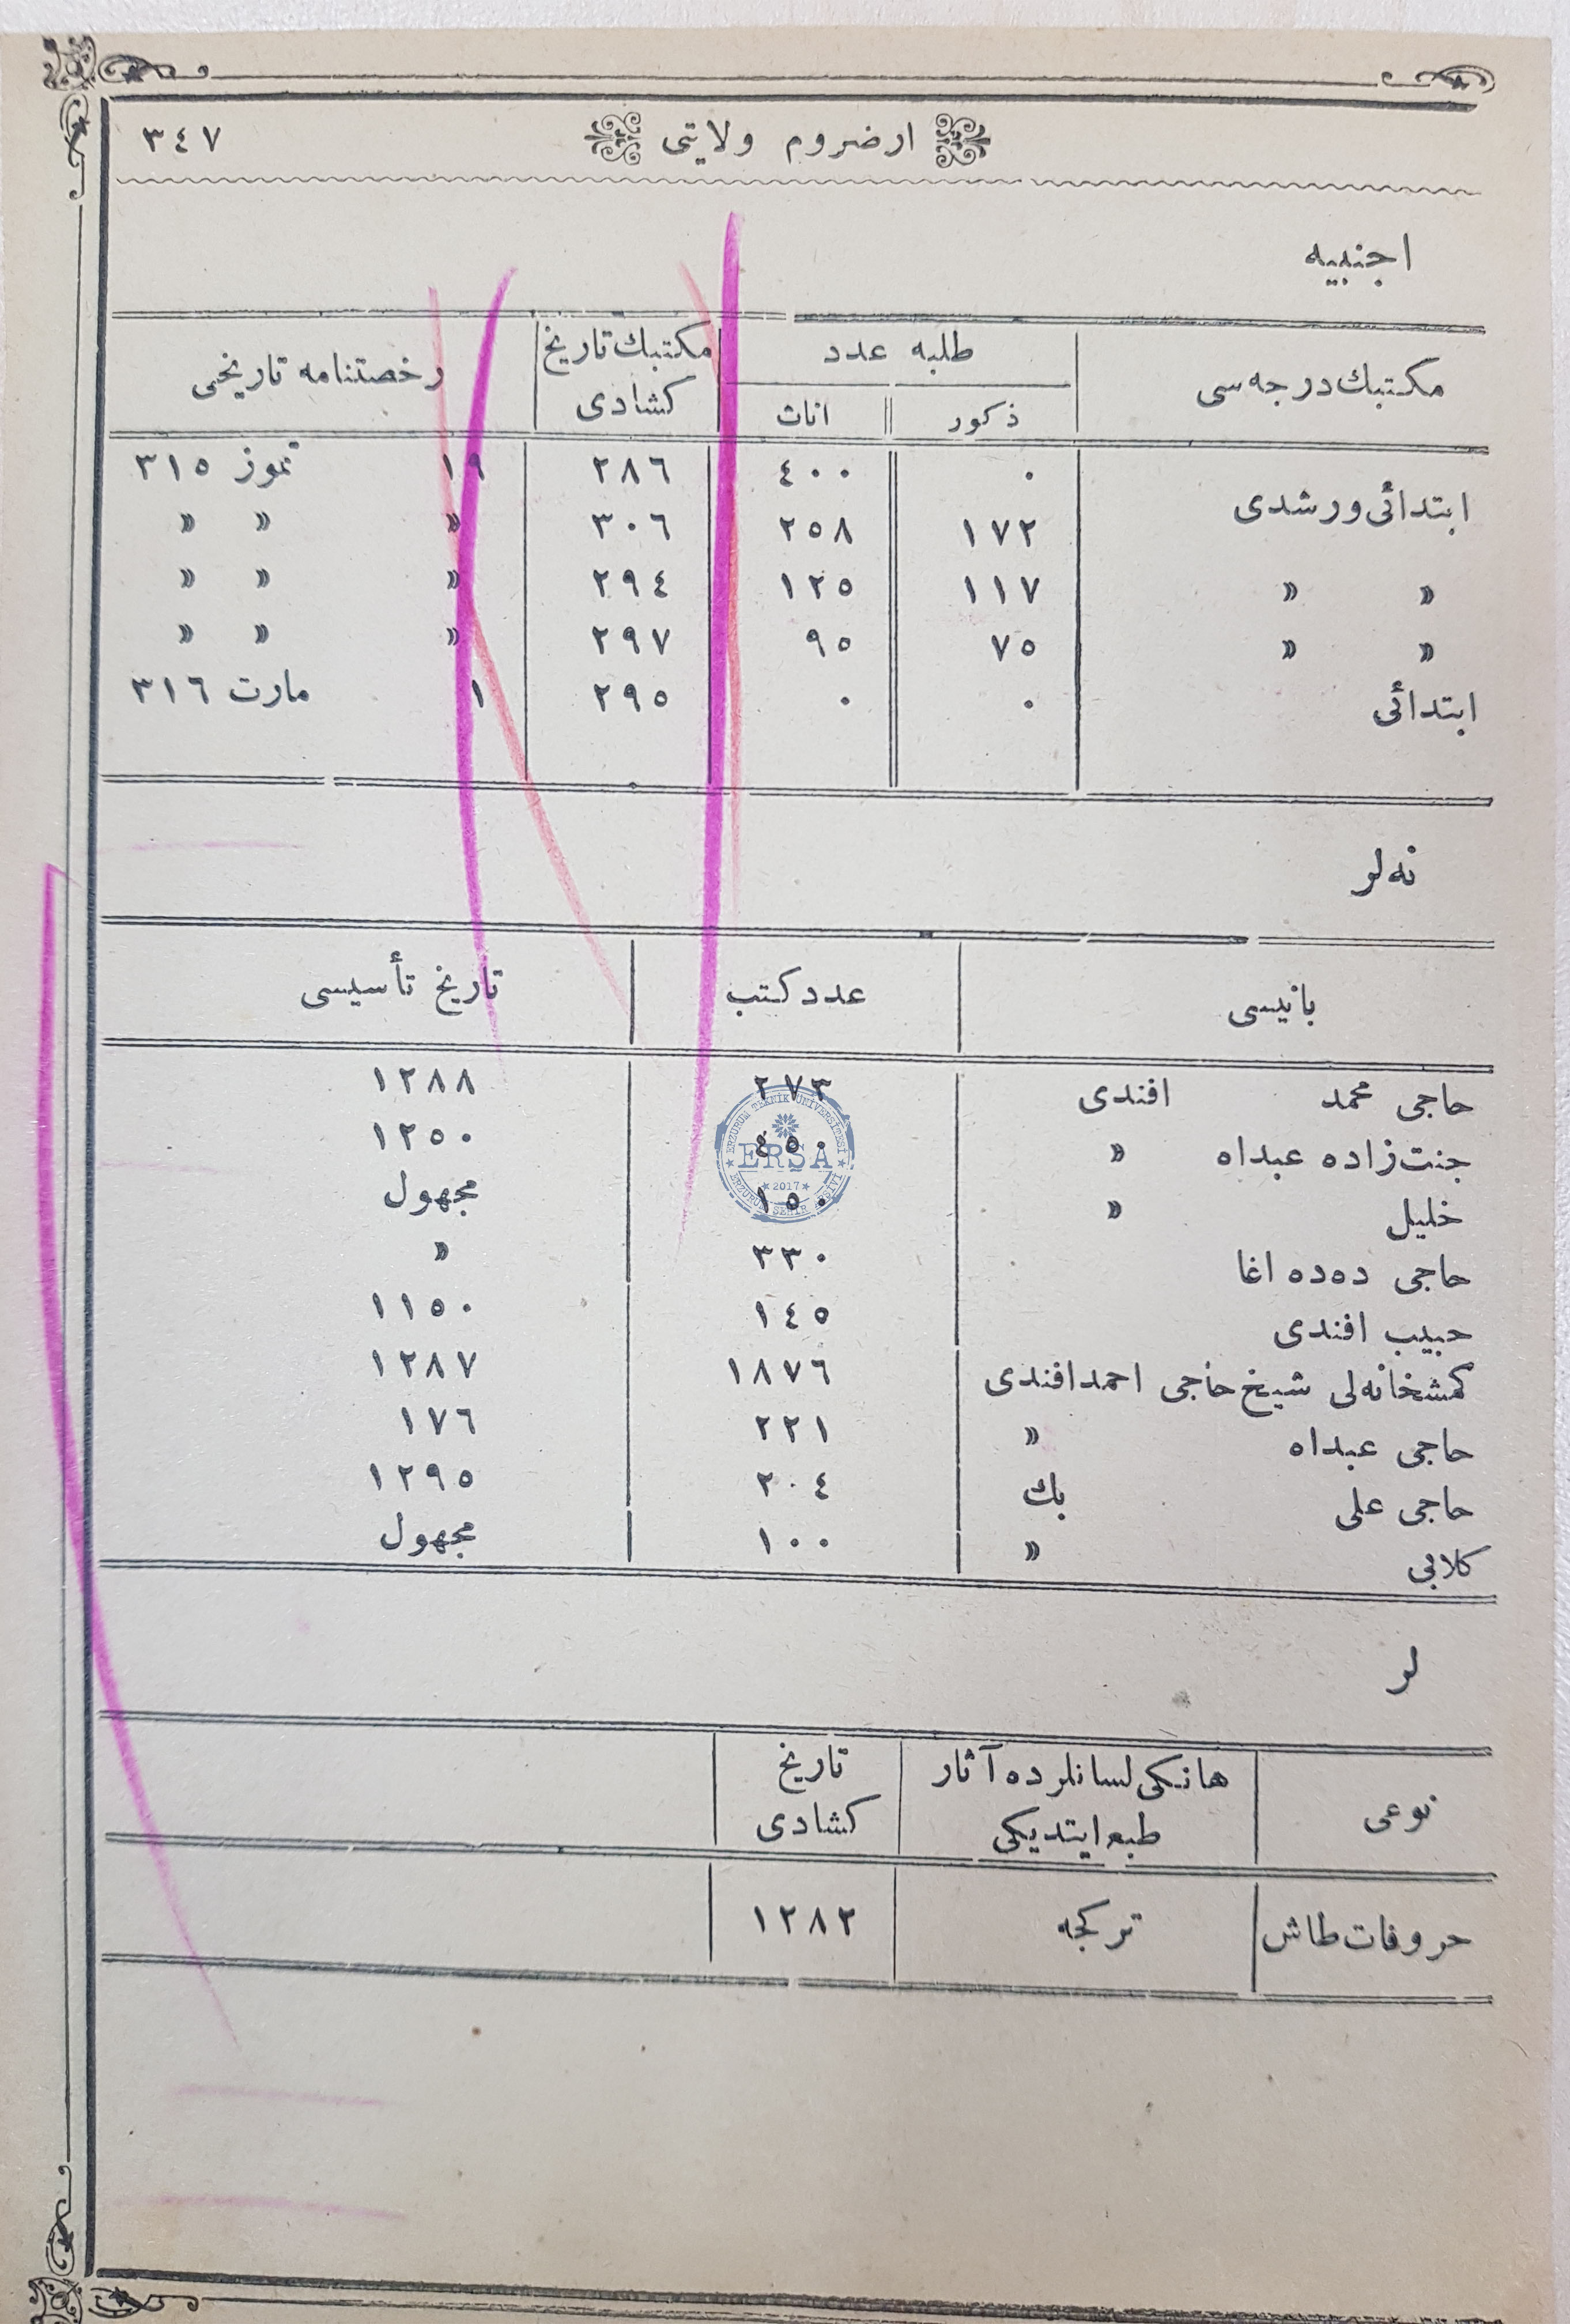 ارضروم ولايتى ٣٤٧
اجنبيه
مكتبك درجه‌سى طلبه عدد مكتبك تاريخ كشادى رخصتنامه تاريخى
ذكور اناث
ابتدائى ورشدى ٠ ٤٠٠ ٢٨٦ ١٩ تموز ٣١٥
١٧٢ ٢٥٨ ٣٠٦ » » »
» » ١١٧ ١٢٥ ٢٩٤ » » »
» » ٧٥ ٩٥ ٢٩٧ » » »
ابتدائى ٠ ٠ ٢٩٥ ١ مارت ٣١٦
نه‌لر
بانيسى عدد كتب تاريخ تأسيسى
حاجى محمد افندى ٢٧٣ ١٢٨٨
جنت‌زاده عبداه » ٤٥٠ ١٢٥٠
خليل » ١٥٠ مجهول
حاجى ده‌ده اغا ٣٣٠ »
حبيب افندى ١٤٥ ١١٥٠
كمشخانه‌لى شيخ حاجى احمدافندى ١٨٧٦ ١٢٨٧
حاجى عبداه » ٢٢١ ١٧٦
حاجى على بك ٢٠٤ ١٢٩٥
كلابى » ١٠٠ مجهول
لر
نوعى هانكى لسانلرده آثار طبع ايتديكى تاريخ كشادى
حروفات طاش تركجه ١٢٨٢
ERZURUM TEKNİK ÜNİVERSİTESİ
ERŞA
2017
ERZURUM ŞEHİR ARŞİVİ